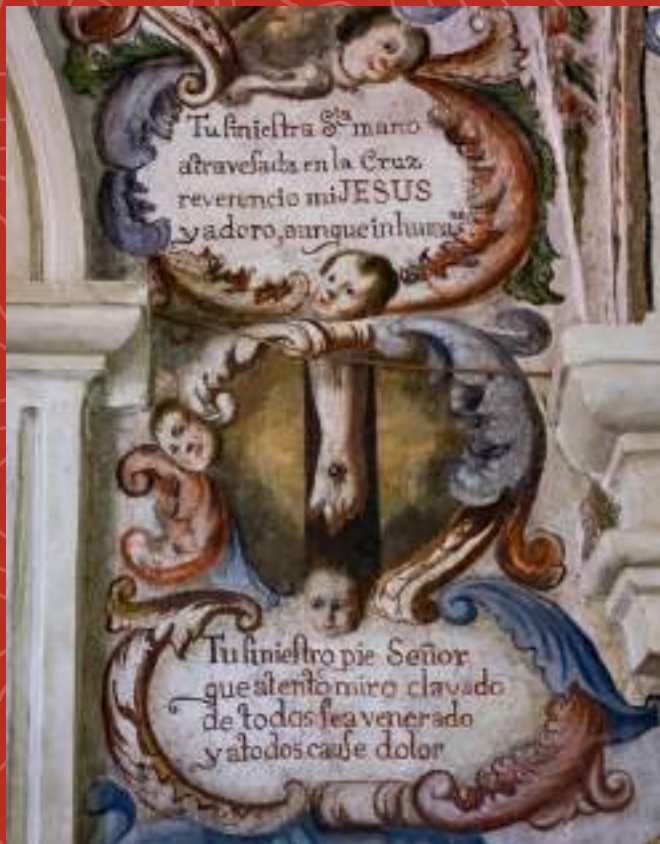 Tu siniestra S.ta mano
atravesada en la Cruz
reverencio mi JESUS
y adoro, aunque inhumaº
Tu siniestro pie Señor
que atento miro clavado
de todos sea venerado
y a todos cause dolor